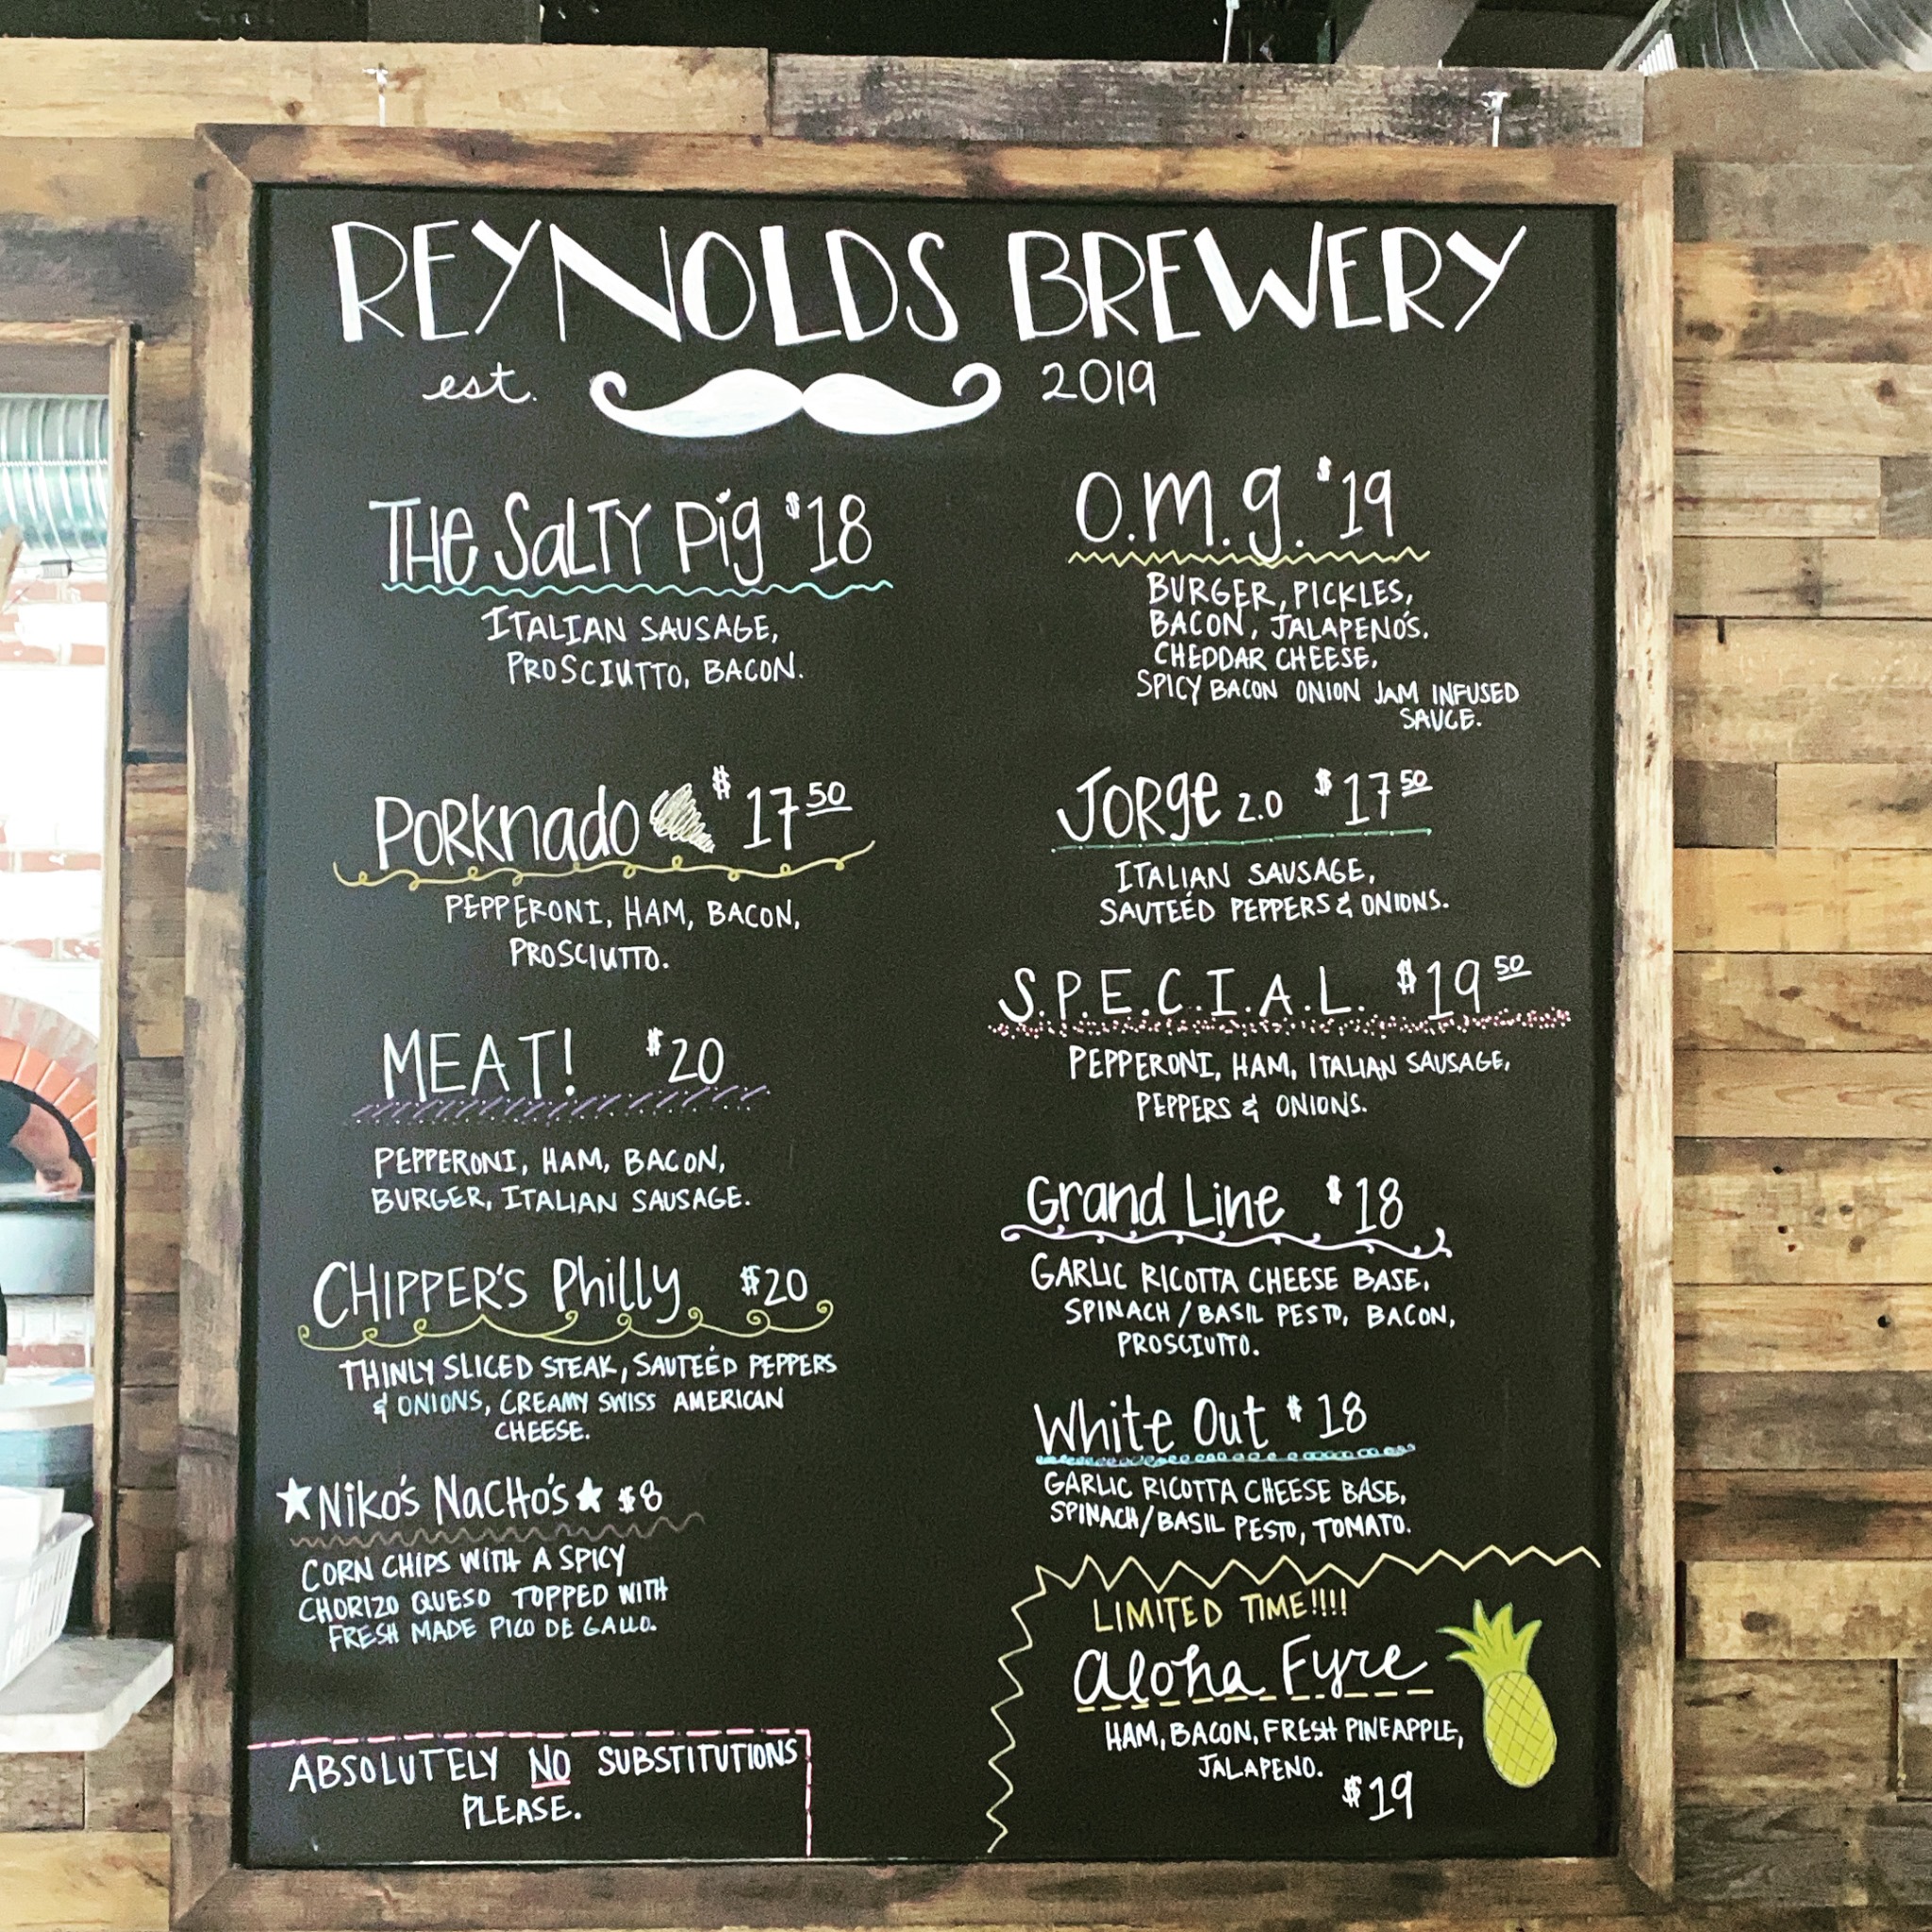 REYNOLDS BREWERY
est. 2019
THE SALTY Pig $18
ITALIAN SAUSAGE,
PROSCIUTTO, BACON.
PORKnado $17 50
PEPPERONI, HAM, BACON,
PROSCIUTTO.
MEAT! $20
PEPPERONI, HAM, BACON,
BURGER, ITALIAN SAUSAGE.
CHIPPER'S Philly $20
THINLY SLICED STEAK, SAUTEÉD PEPPERS
& ONIONS, CREAMY SWISS AMERICAN
CHEESE.
★NiKO'S NACHO'S★ $8
CORN CHIPS WITH A SPICY
CHORIZO QUESO TOPPED WITH
FRESH MADE PICO DE GALLO.
ABSOLUTELY NO SUBSTITUTIONS
PLEASE.
O.M.g. $19
BURGER, PICKLES,
BACON, JALAPENO'S.
CHEDDAR CHEESE,
SPICY BACON ONION JAM INFUSED
SAUCE.
JORge 2.0 $17 50
ITALIAN SAUSAGE,
SAUTEÉD PEPPERS & ONIONS.
S.P.E.C.I.A.L. $19 50
PEPPERONI, HAM, ITALIAN SAUSAGE,
PEPPERS & ONIONS.
Grand Line $18
GARLIC RICOTTA CHEESE BASE,
SPINACH/BASIL PESTO, BACON,
PROSCIUTTO.
White Out $18
GARLIC RICOTTA CHEESE BASE,
SPINACH/BASIL PESTO, TOMATO.
LIMITED TIME!!!!
Aloha Fyre
HAM, BACON, FRESH PINEAPPLE,
JALAPENO.
$19